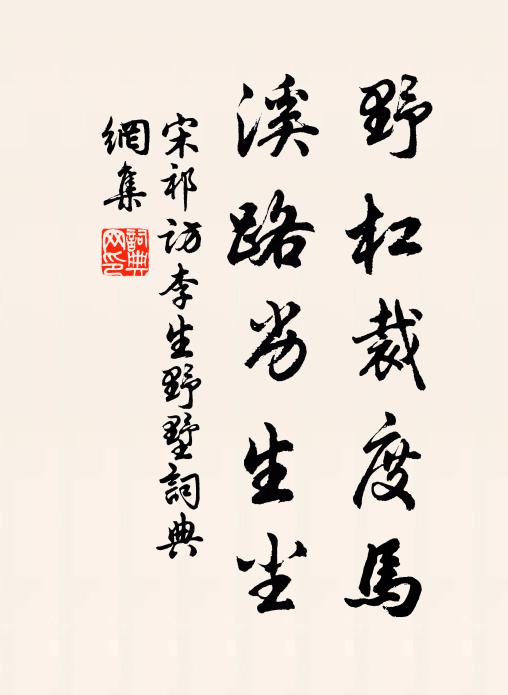 野杠裁度馬
溪路劣生尘
宋祁訪李生野墅詞典
網集
詞典網印